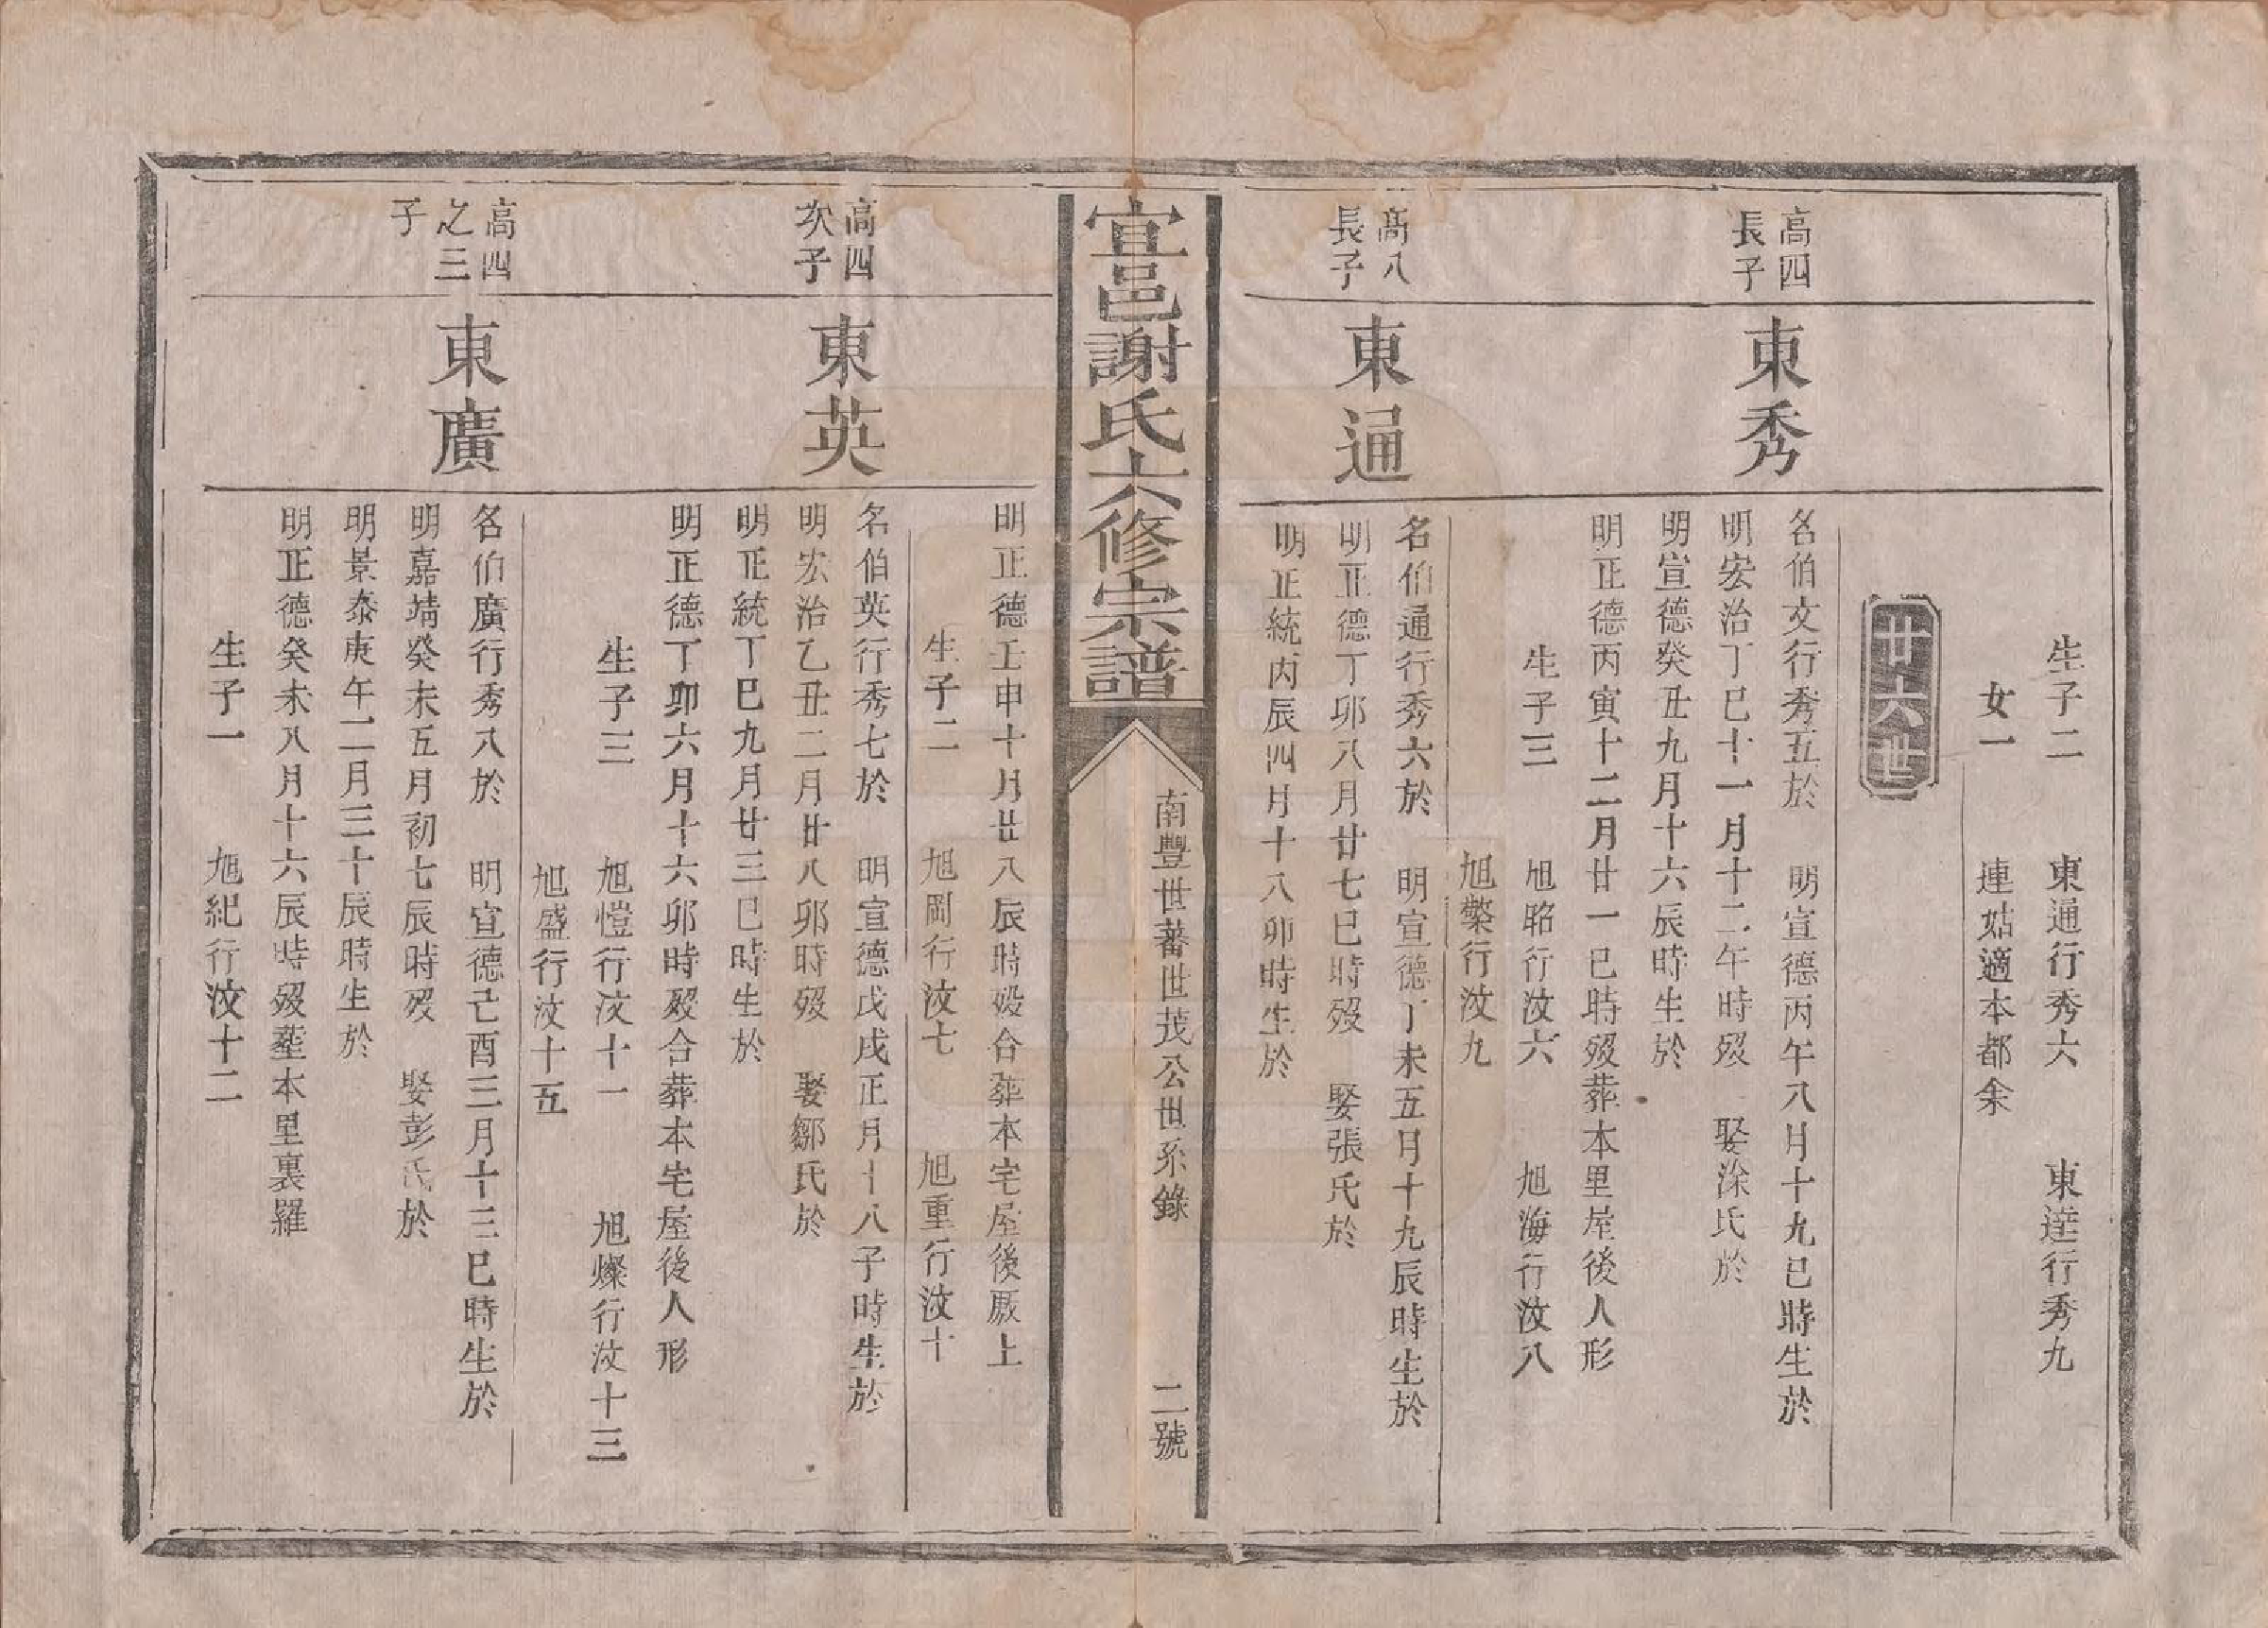 生子二　東通行秀六　東達行秀九
女一　連姑適本都余
廿六世
高四
長子
東秀
名伯文行秀五於　明宣德丙午八月十九巳時生於
明宏治丁巳十一月十二午時歿　娶涂氏於
明宣德癸丑九月十六辰時生於
明正德丙寅十二月廿一巳時歿葬本里屋後人形
生子三　旭昭行汶六　旭海行汶八
旭檠行汶九
高八
長子
東通
名伯通行秀六於　明宣德丁未五月十九辰時生於
明正德丁卯八月廿七巳時歿　娶張氏於
明正統丙辰四月十八卯時生於
宜邑謝氏六修宗譜
南豐世蕃世茂公世系錄　二號
明正德壬申十月廿八辰時歿合葬本宅屋後厫上
生子二　旭岡行汶七　旭重行汶十
高四
次子
東英
名伯英行秀七於　明宣德戊戌正月十八子時生於
明宏治乙丑二月廿八卯時歿　娶鄒氏於
明正統丁巳九月廿三巳時生於
明正德丁卯六月十六卯時歿合葬本宅屋後人形
生子三　旭愷行汶十一　旭燦行汶十三
旭盛行汶十五
高四
之三
子
東廣
名伯廣行秀八於　明宣德己酉三月十三巳時生於
明嘉靖癸未五月初七辰時歿　娶彭氏於
明景泰庚午二月三十辰時生於
明正德癸未八月十六辰時歿塟本里裏羅
生子一　旭紀行汶十二